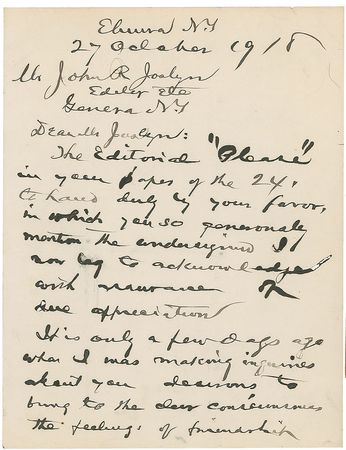 Elmira N.Y
27 October 1918
Mr John R Joslyn
Editor Etc
Geneva N.Y
Dear Mr Joslyn:
The Editorial "Please"
in your paper of the 24,
to hand duly by your favor,
in which you so generously
mention the undersigned I
now beg to acknowledge
with assurance of
due appreciation
It is only a few days ago
when I was making inquiries
about you desirous to
bring to the dear consciousness
the feelings of friendship